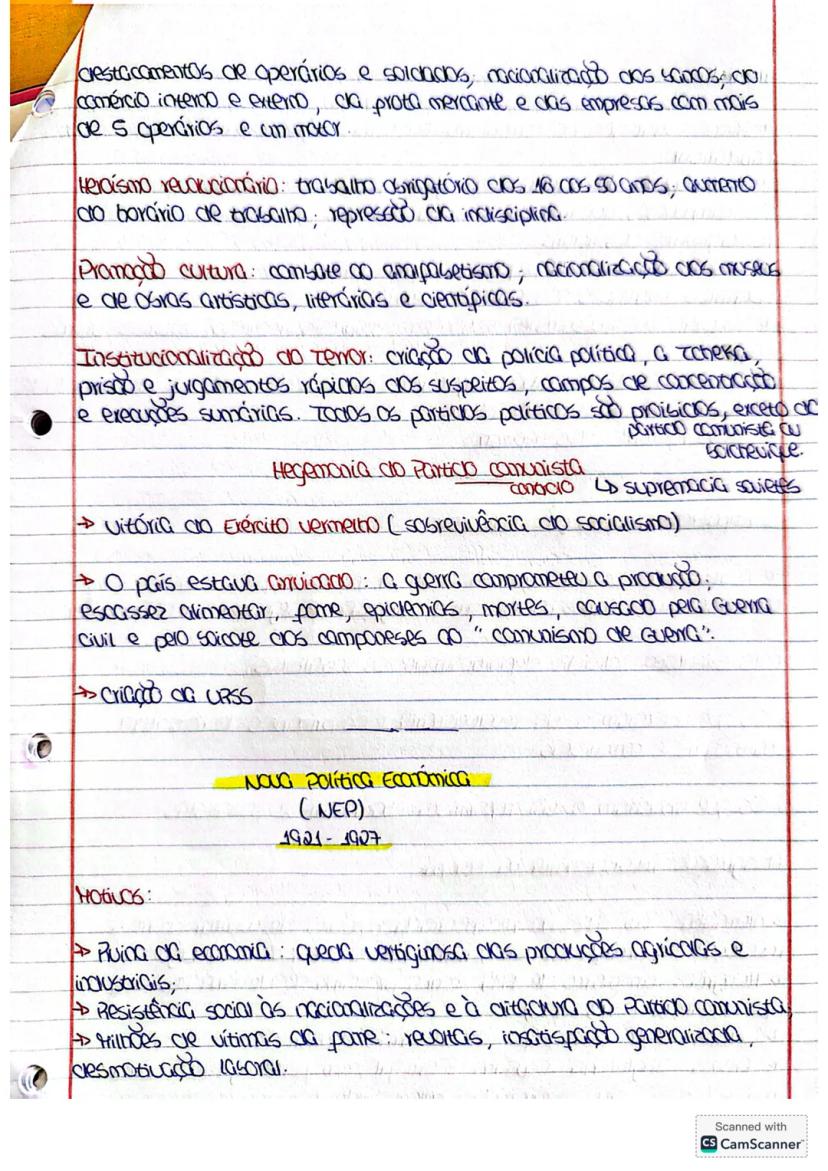 destacamentos de operários e soldados; nacionalização dos bancos, do
comércio interno e externo, da frota mercante e das empresas com mais
de 5 operários e um motor.
Heroísmo revolucionário: trabalho obrigatório dos 16 aos 50 anos; aumento
do horário de trabalho; repressão da indisciplina.
Promoção cultura: combate ao analfabetismo; nacionalização dos museus
e de obras artísticas, literárias e científicas.
Institucionalização do Terror: criação da polícia política, a Tcheka,
prisão e julgamentos rápidos dos suspeitos, campos de concentração
e execuções sumárias. Todos os partidos políticos são proibidos, exceto do
partido comunista ou
bolchevique.
Hegemonia do Partido comunista
↳ supremacia sovietes
→ Vitória do Exército vermelho (sobrevivência do socialismo)
→ O país estava arruinado: a guerra comprometeu a produção;
escassez alimentar, fome, epidemias, mortes, causado pela Guerra
civil e pelo boicote dos camponeses ao "comunismo de Guerra".
→ Criação da URSS
Nova Política Económica
(NEP)
1921 - 1927
Motivos:
→ Ruína da economia: queda vertiginosa das produções agrícolas e
industriais;
→ Resistência social às nacionalizações e à ditadura do Partido comunista;
→ Milhões de vítimas da fome: revoltas, insatisfação generalizada,
desmotivação laboral.
Scanned with
CS CamScanner